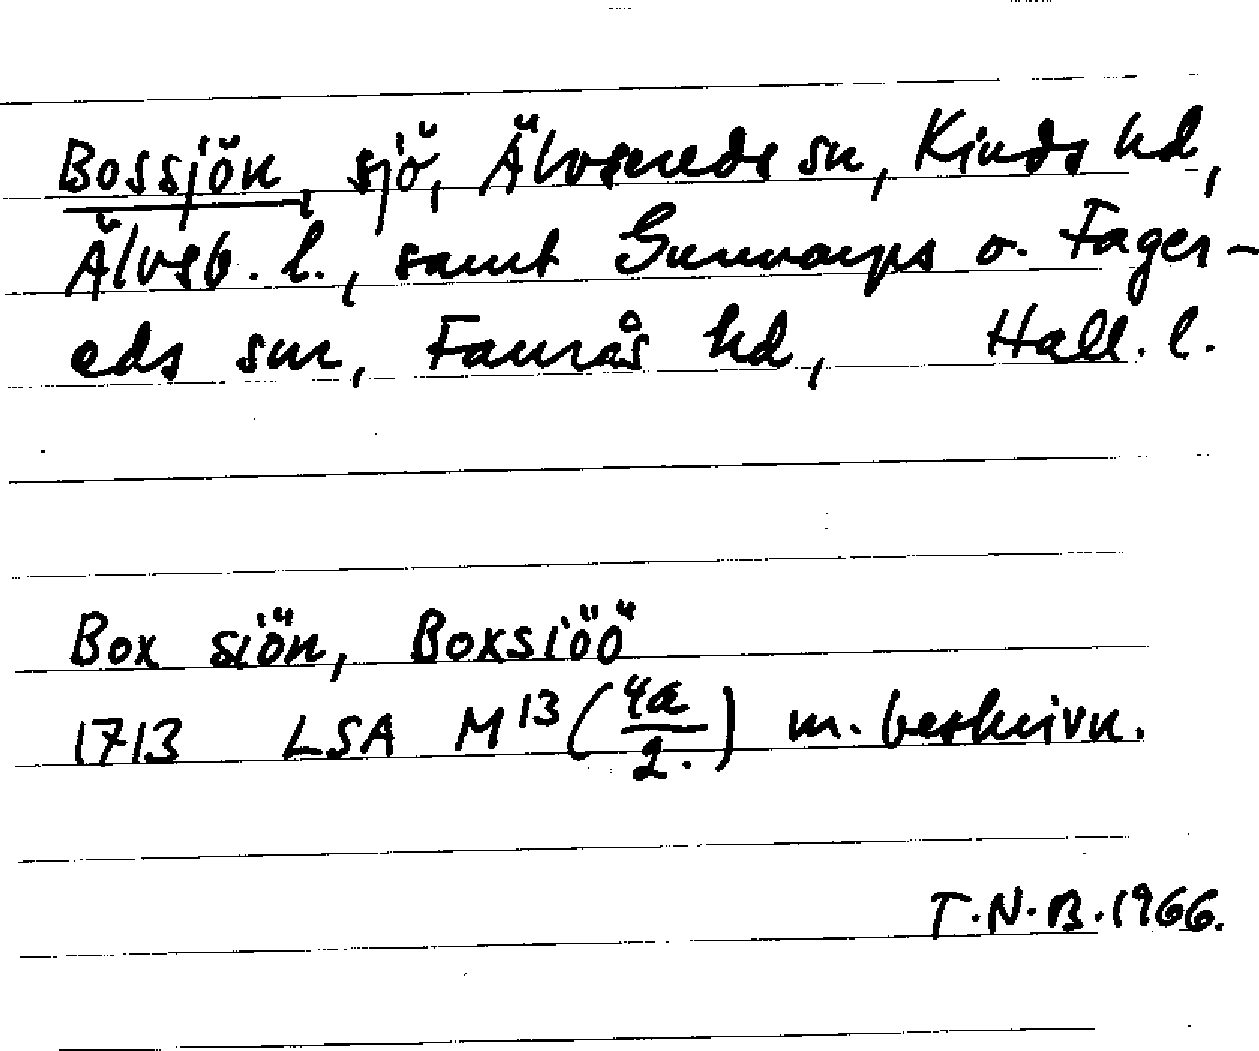 Bossjön, sjö, Älvsereds sn, Kinds hd,
Älvsb. l., samt Gunnarps o. Fager-
eds snr, Faurås hd, Hall. l.
Box siön, Boxsiöö
1713 LSA M 13 (4a/2.) m. beskrivn.
T.N.B. 1966.